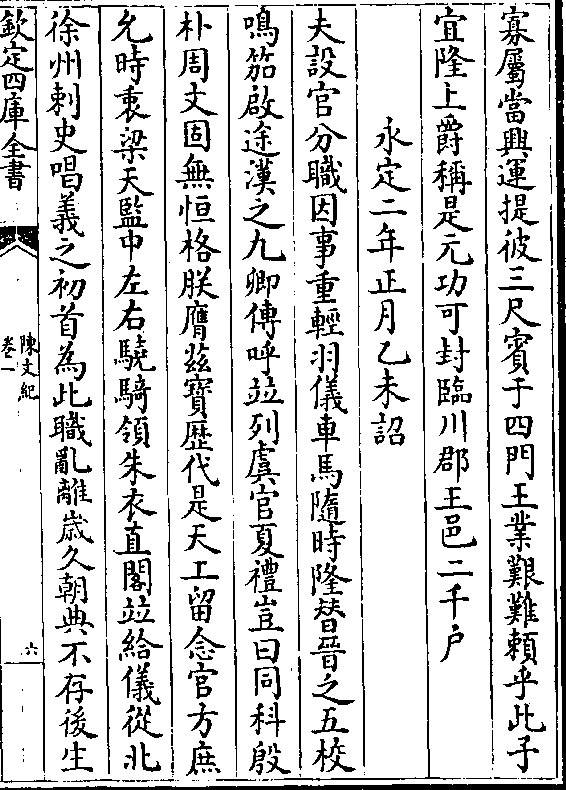 寡屬當興運提彼三尺賓于四門王業艱難賴乎此子
宜隆上爵稱是元功可封臨川郡王邑二千户
永定二年正月乙未詔
夫設官分職因事重輕羽儀車馬隨時隆替晉之五校
鳴笳啟途漢之九卿傳呼竝列虞官夏禮豈曰同科殷
朴周文固無恒格朕膺茲寶歴代是天工留念官方庶
允時衷梁天監中左右驍騎領朱衣直閣竝給儀從北
徐州刺史唱義之初首為此職亂離歲久朝典不存後生
欽定四庫全書
陳文紀
卷一
六